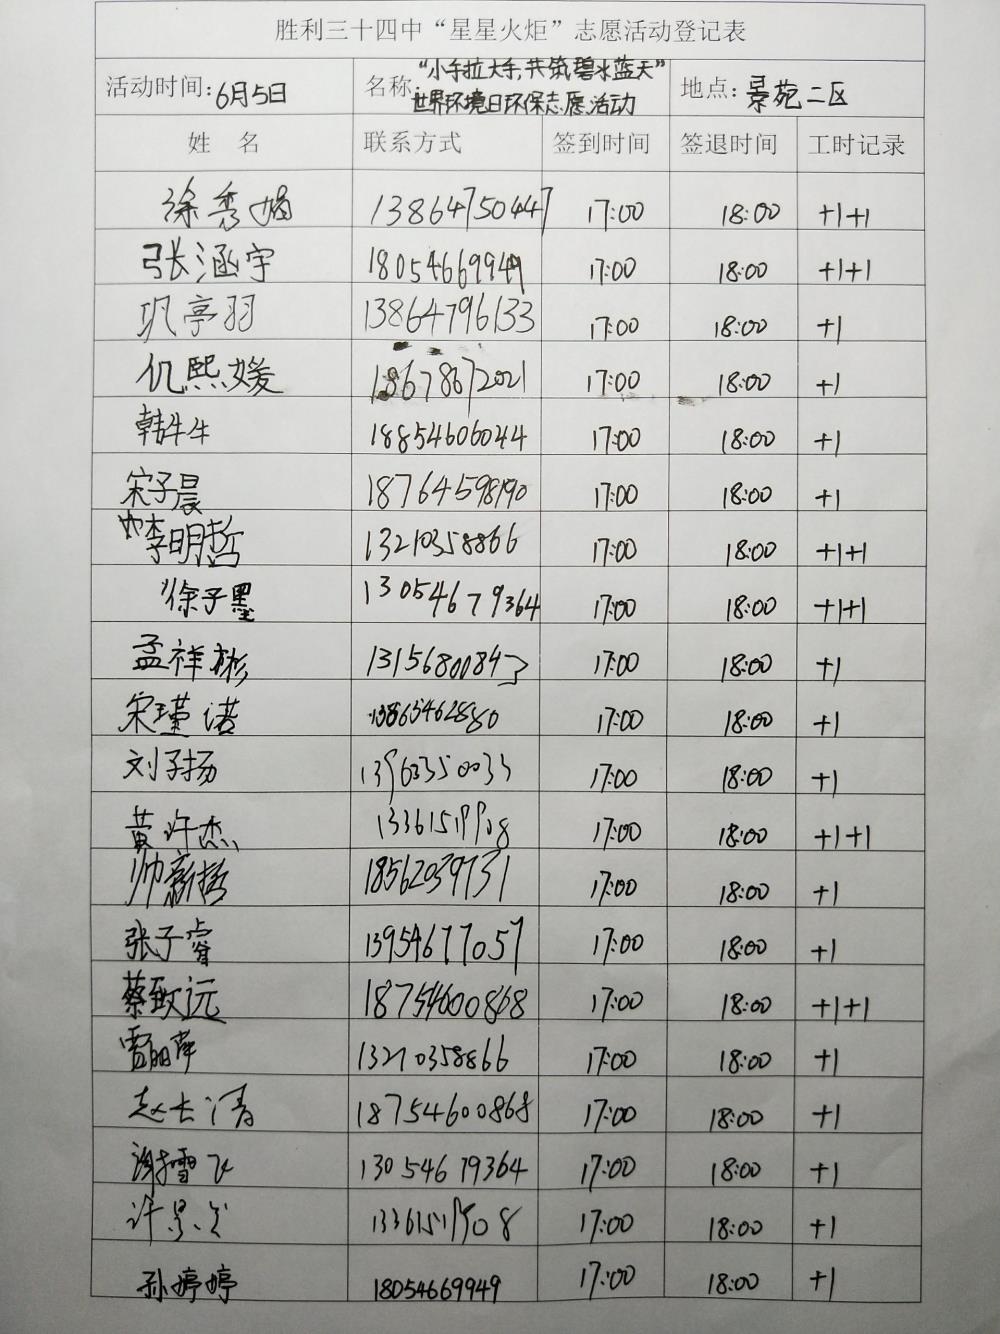 胜利三十四中“星星火炬”志愿活动登记表
活动时间: 6月5日 名称: “小手拉大手,共筑碧水蓝天” 世界环境日环保志愿活动 地点: 景苑二区
姓 名 联系方式 签到时间 签退时间 工时记录
徐秀娟 13864750447 17:00 18:00 +1+1
张涵宇 18054669949 17:00 18:00 +1+1
巩亭羽 13864796133 17:00 18:00 +1
仇熙媛 18678672021 17:00 18:00 +1
韩牛牛 18854606044 17:00 18:00 +1
宋子晨 18764598190 17:00 18:00 +1
李明哲 13210358866 17:00 18:00 +1+1
徐子墨 13054679364 17:00 18:00 +1+1
孟祥彬 13156800843 17:00 18:00 +1
宋瑾诺 13865462880 17:00 18:00 +1
刘子扬 13963350033 17:00 18:00 +1
黄许杰 13361519908 17:00 18:00 +1+1
帅新哲 18562039731 17:00 18:00 +1
张子睿 13954677057 17:00 18:00 +1
蔡致远 18754600868 17:00 18:00 +1+1
13210358866 17:00 18:00 +1
赵长清 18754600868 17:00 18:00 +1
谢雪飞 13054679364 17:00 18:00 +1
许景 13361519908 17:00 18:00 +1
孙婷婷 18054669949 17:00 18:00 +1